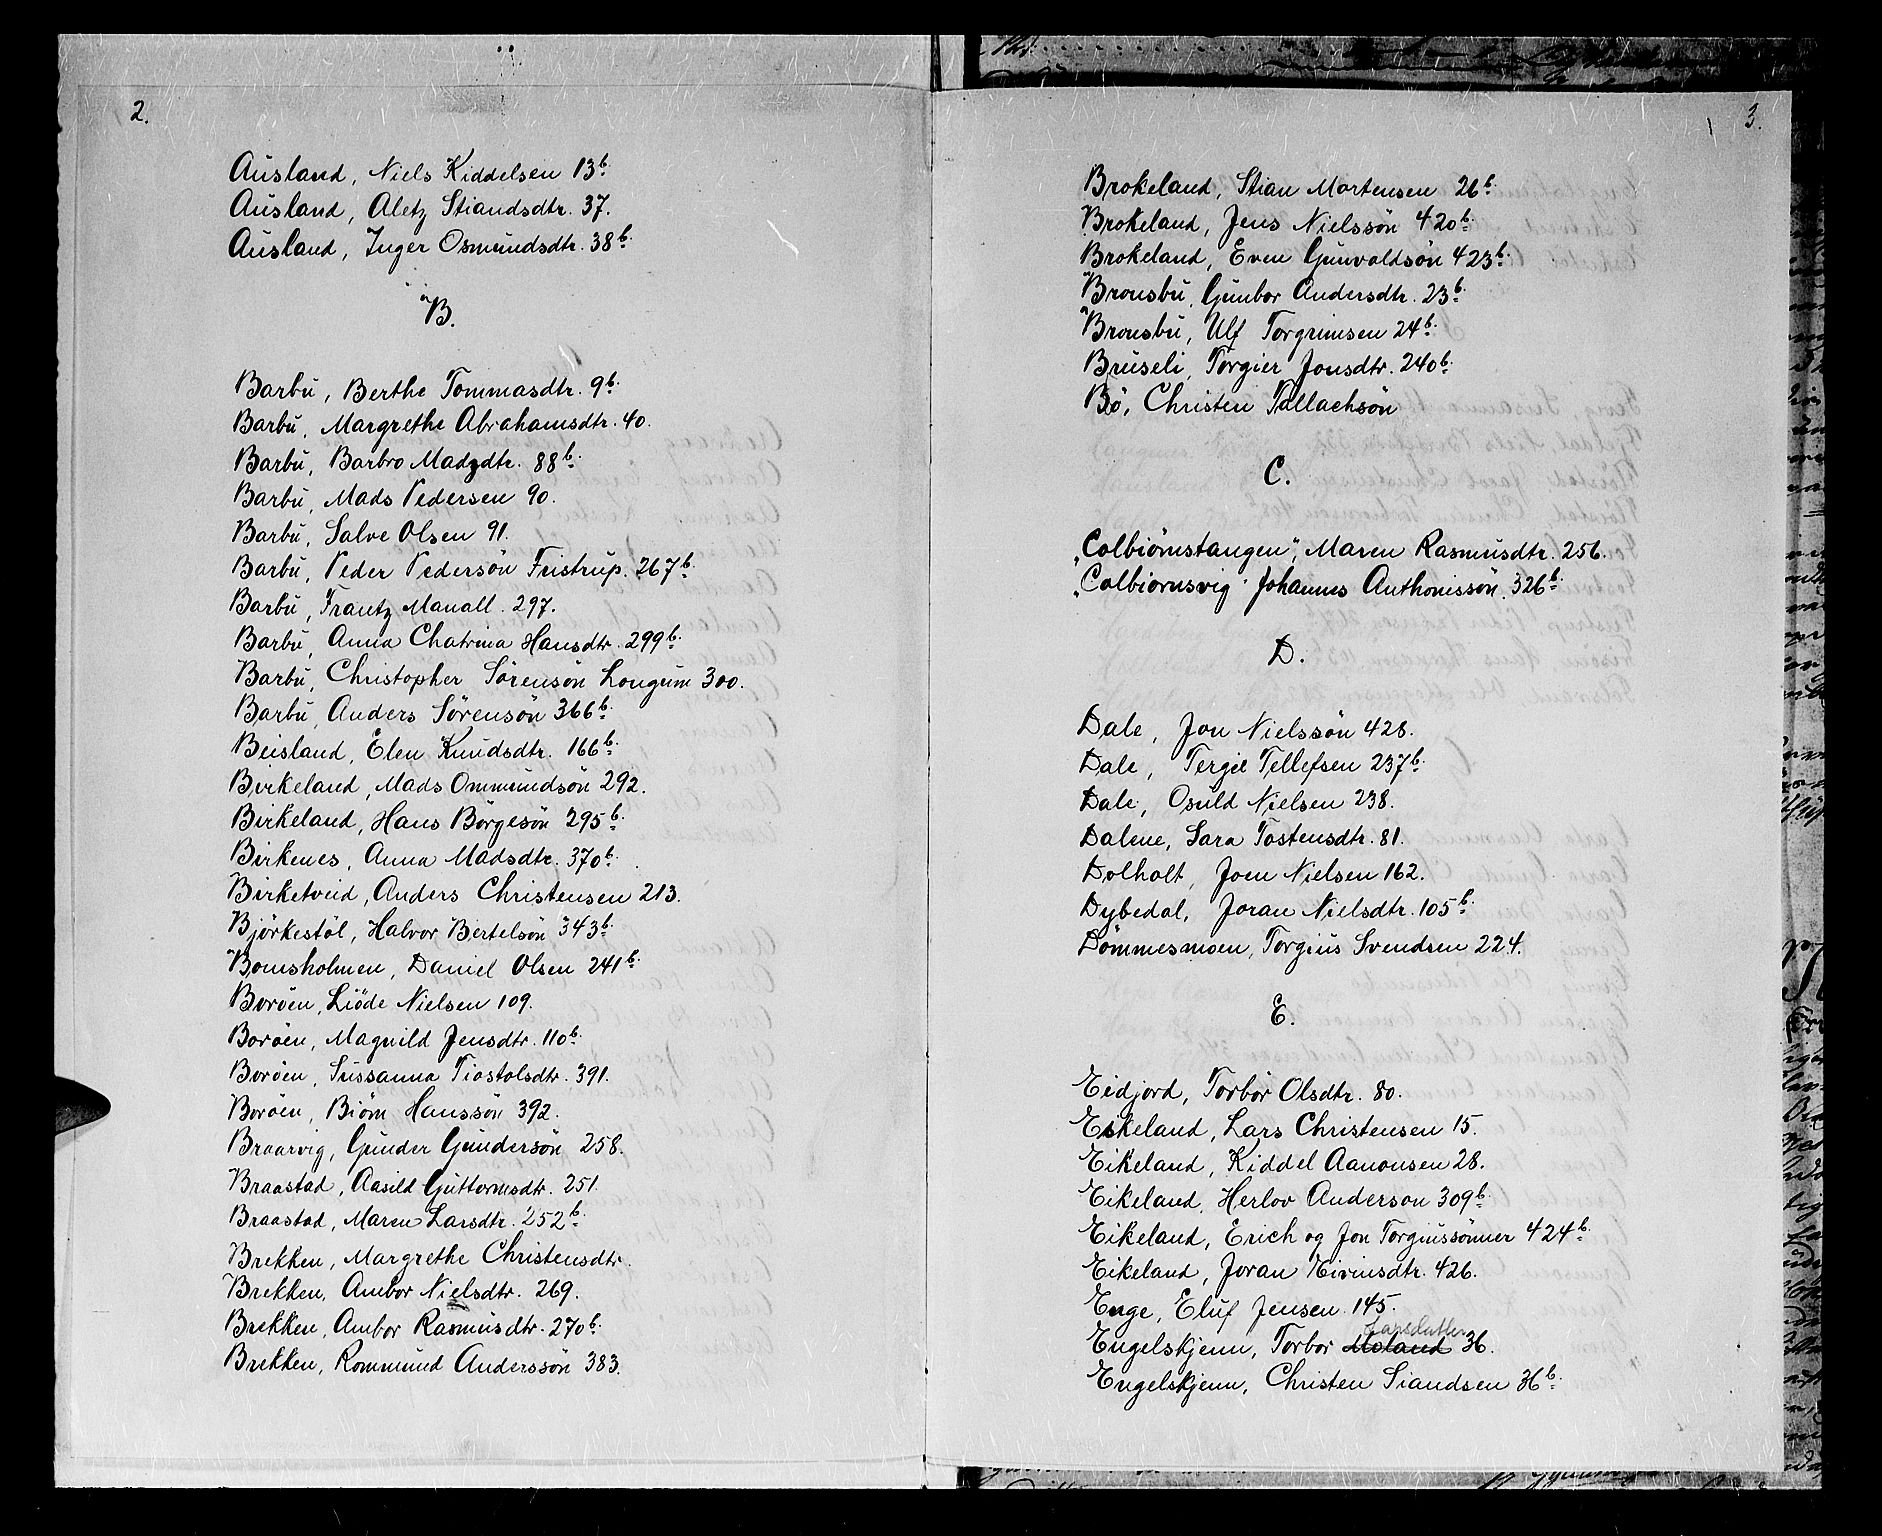 2.
Ausland, Niels Kiddelsen 13b.
Ausland, Aletz Stiandsdtr. 37.
Ausland, Inger Osmundsdtr. 38b.
B.
Barbu, Berthe Tommasdtr. 9b.
Barbu, Margrethe Abrahamsdtr. 40.
Barbu, Barbro Madzdtr. 88b.
Barbu, Mads Pedersen 90.
Barbu, Salve Olsen 91.
Barbu, Peder Pedersön Fristrup. 267b.
Barbu, Frantz Manall. 297.
Barbu, Anna Chatrina Hansdtr. 299b.
Barbu, Christopher Sörensön Longum 300.
Barbu, Anders Sörensön 366b.
Beisland, Elen Knudsdtr. 166b.
Birkeland, Mads Ommundsön 292.
Birkeland, Hans Börgesön 295b.
Birkenes, Anna Madsdtr. 370b.
Birketveid, Anders Christensen 213.
Björkestöl, Halvor Bertelsön 343b.
Bomsholmen, Daniel Olsen 241b.
Boröen, Liöde Nielsen 109.
Boröen, Magnild Jensdtr. 110b.
Boröen, Sussanna Tiostolsdtr. 391.
Boröen, Biörn Hanssön 392.
Braarvig, Gunder Gundersön 258.
Braastad, Aasild Guttormsdtr. 251.
Braastad, Maren Larsdtr. 252b.
Brekken, Margrethe Christensdtr.
Brekken, Ambor Nielsdtr. 269.
Brekken, Ambor Rasmusdtr. 270b.
Brekken, Rommund Anderssön 383.
3.
Brokeland, Stian Mortensen 26b.
Brokeland, Jens Nielssön 420b.
Brokeland, Even Gunvaldsön 423b.
Bronsbu, Gunbor Andersdtr. 23b.
Bronsbu, Ulf Torgrimsen 24b.
Bruseli, Torgier Jonsdtr. 240b.
Bö, Christen Tallachsön
C.
"Colbiörnstangen", Maren Rasmusdtr. 256.
"Colbiornsvig" Johannes Anthonissön. 326b.
D.
Dale, Jon Nielssön 428.
Dale, Tergie Tellefsen 237b.
Dale, Osuld Nielsen 238.
Dalene, Sara Tostensdtr. 81.
Dolholt, Joen Nielsen 162.
Dybedal, Joran Nielsdtr. 105b.
Dömmesmoen, Torgius Svendsen 224.
E.
Eidjord, Torbör Olsdtr. 80.
Eikeland, Lars Christensen 15.
Eikeland, Kiddel Aanonsen 28.
Eikeland, Herlov Anderson 309b.
Eikeland, Erich og Jon Torgiussönner 424b.
Eikeland, Joran Eivinsdtr. 426.
Enge, Eluf Jensen 145.
Engelskjenn, Torbor Moland Larsdatter 36.
Engelskjenn, Christen Siandsen 36b.